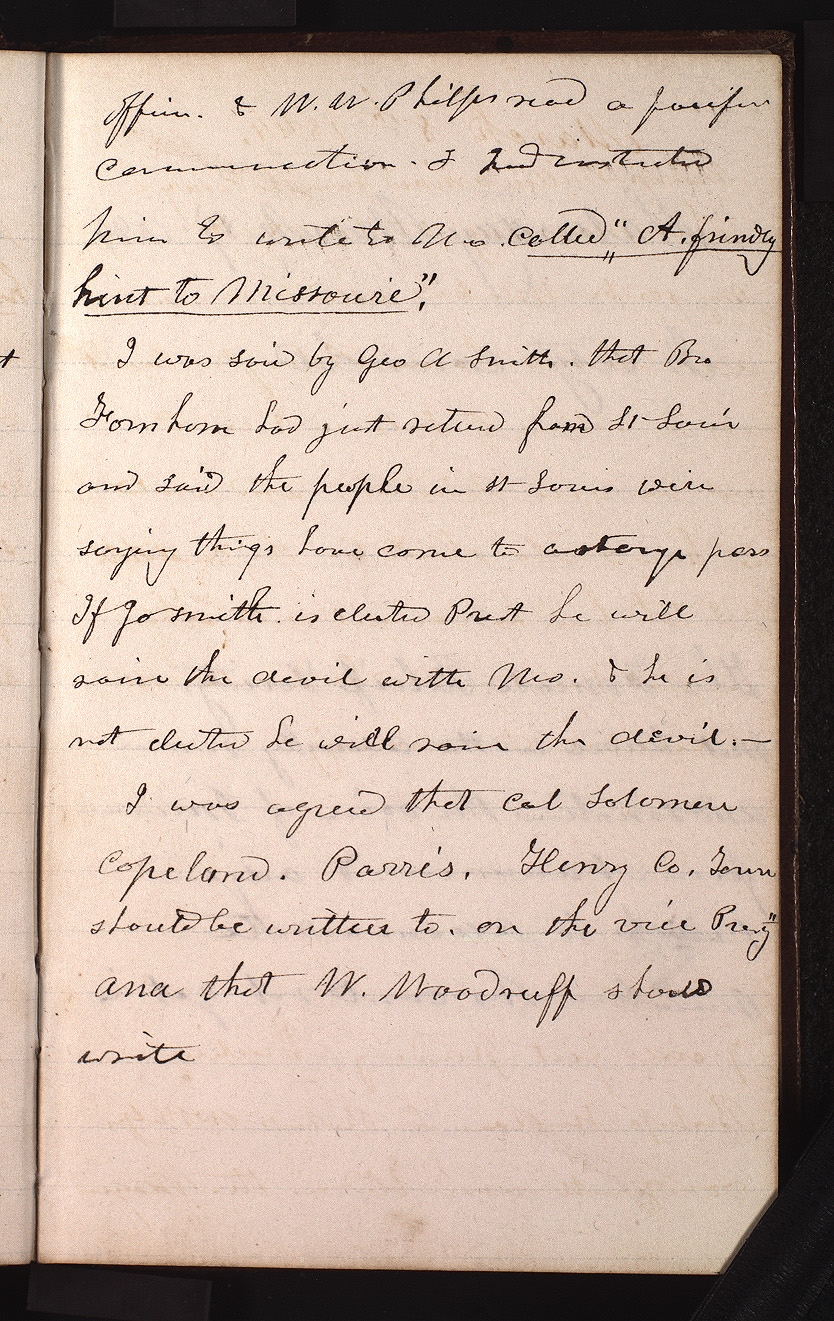 office. & W. W. Phelps read a pacific
communication. I had instructed
him to write to Mo. called,, "A. friendly
hint to Missourie".
I was said by Geo A Smith. that Bro
Farnham had just returd from St Louis
and said the people in St Louis were
saying things have come to a strange pass
If Jo smith. is elected Prest he will
raise the devil with Mo. & he is
not elected he will raise the devil.—
I was agreed that Col Solomen
Copeland. Parris, Henry Co.
should be written to. on the vice Precy"
and that W. Woodruff should
write